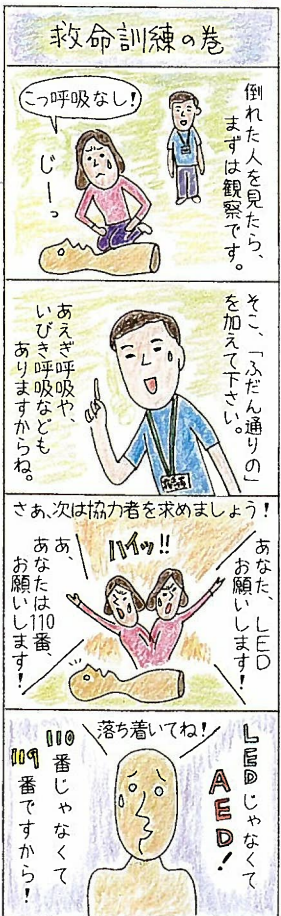 救命訓練の巻
倒れた人を見たら、
まずは観察です。
こっ呼吸なし!
じーっ
そこ、「ふだん通りの」
を加えて下さい。
あえぎ呼吸や、
いびき呼吸なども
ありますからね。
さあ、次は協力者を求めましょう!
あなた、LED
お願いします!
ハイッ!!
あ、
あなたは110番、
お願いします!
LEDじゃなくて
AED!
落ち着いてね!
110番じゃなくて
119番ですから!